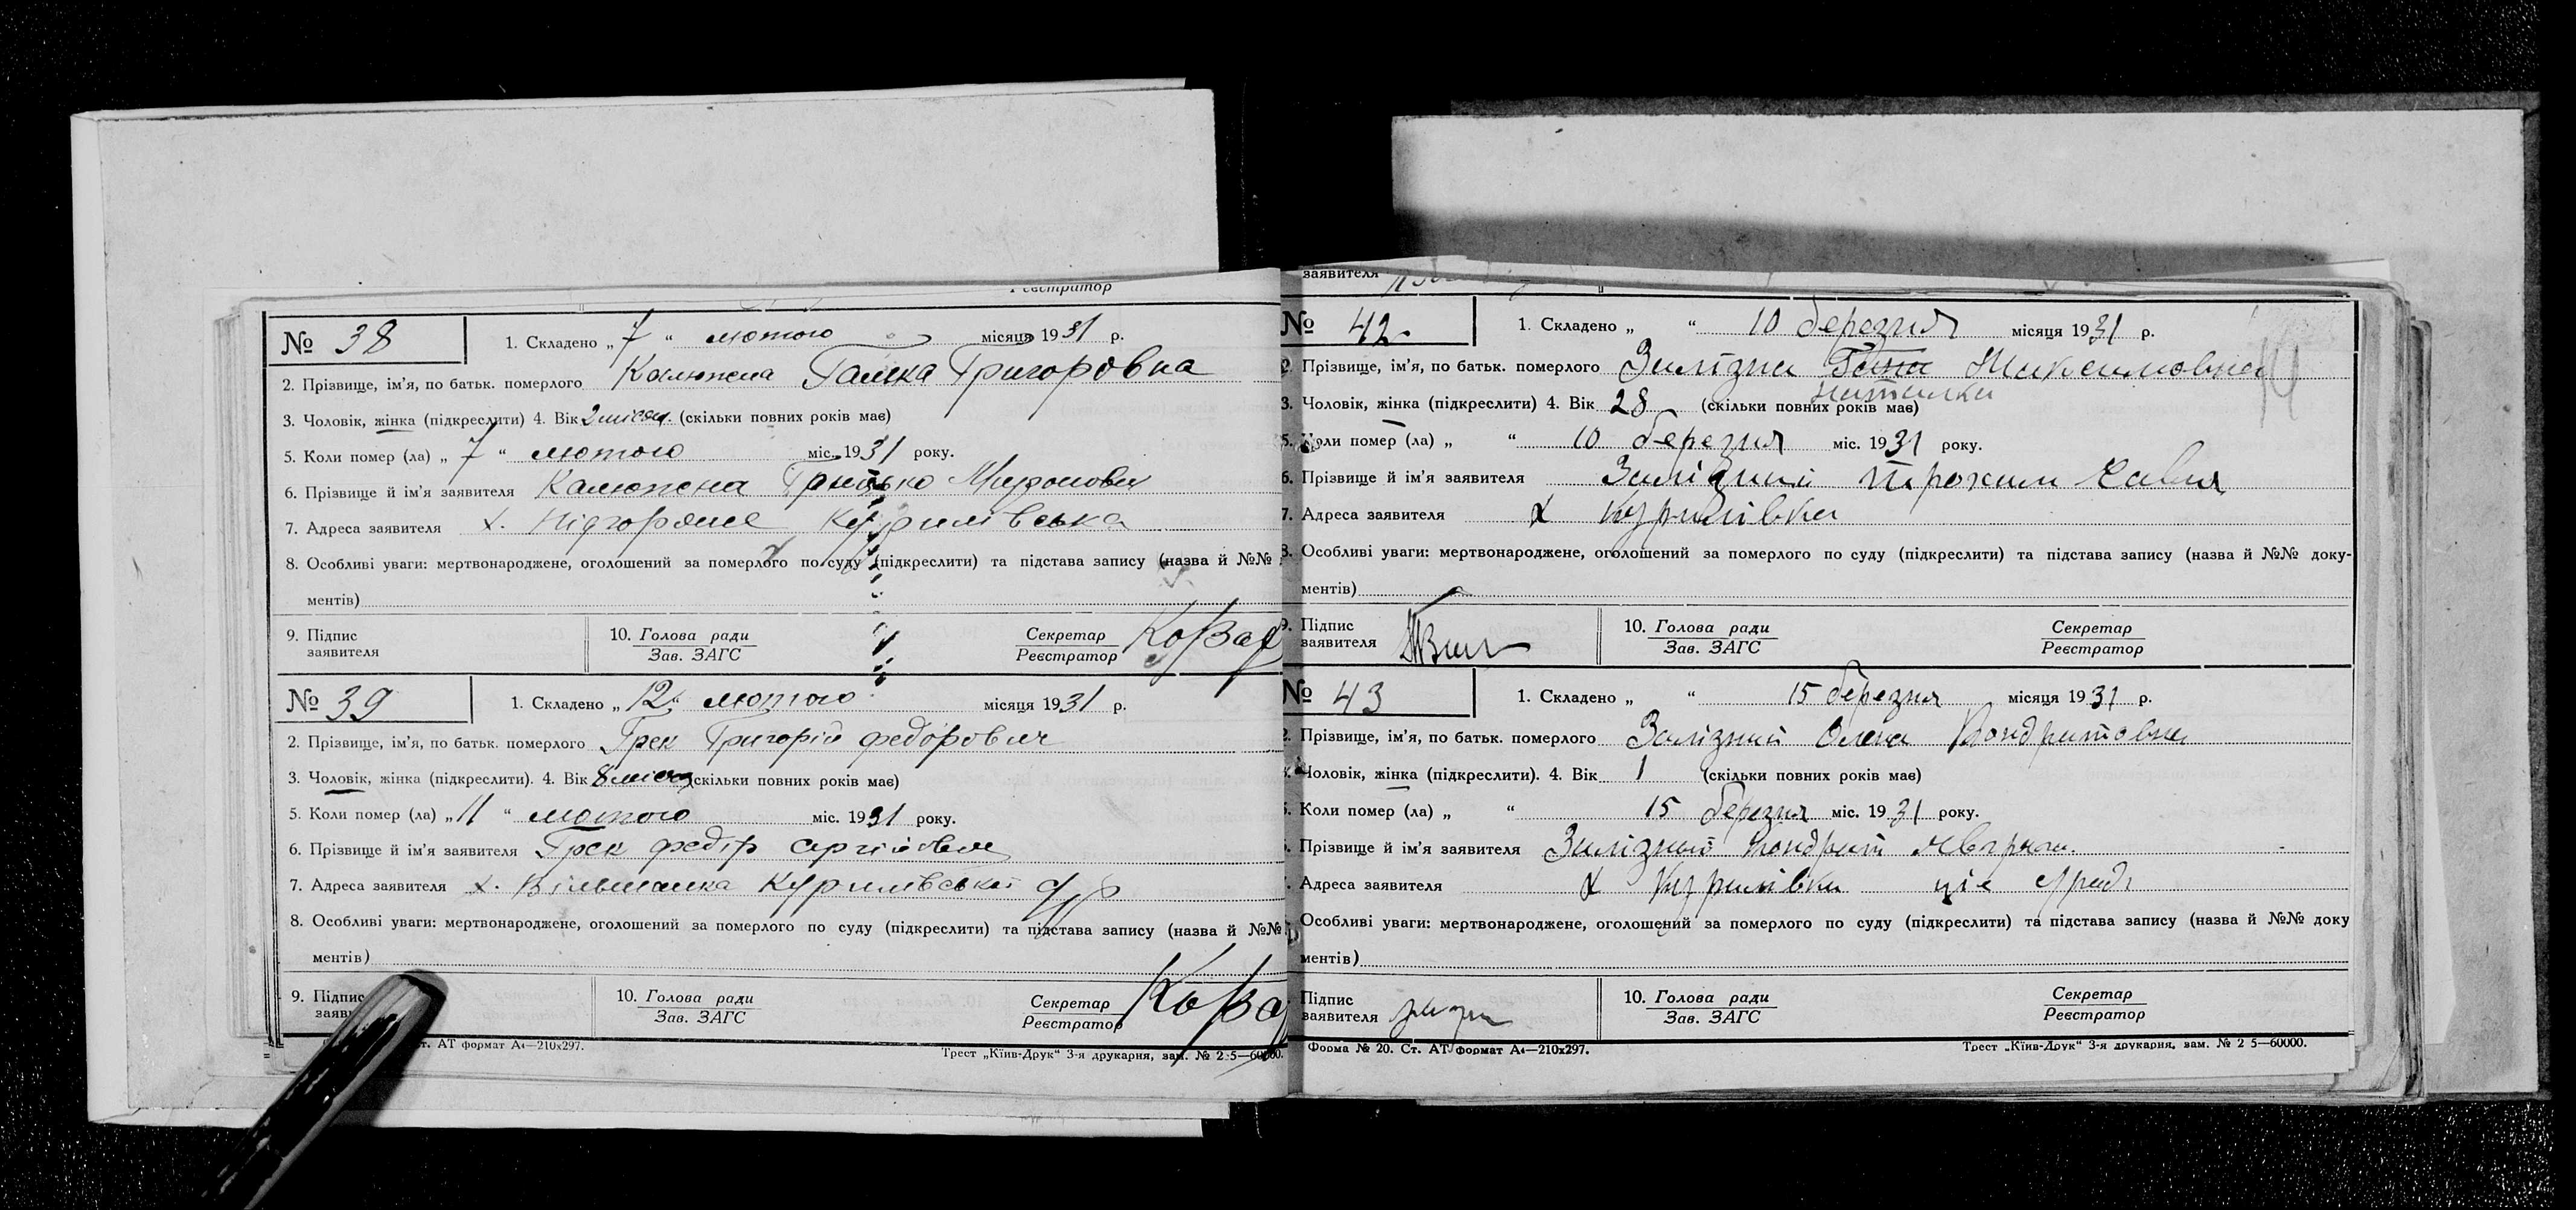 Реєстратор
№ 38
1. Складено „7“ лютого місяця 1931 р.
2. Прізвище, ім'я, по батьк. померлого Галька Григоровна
3. Чоловік, жінка (підкреслити) 4. Вік 2 місяц. (скільки повних років має)
5. Коли помер (ла) „7“ лютого міс. 1931 року.
6. Прізвище й ім'я заявителя Грицько Миронович
7. Адреса заявителя х. Підгорянє Курилівська
8. Особливі уваги: мертвонароджене, оголошений за померлого по суду (підкреслити) та підстава запису (назва й №№
ментів)
9. Підпис заявителя
10. Голова ради
Зав. ЗАГС
Секретар
Реєстратор
№ 39
1. Складено „12“ лютого місяця 1931 р.
2. Прізвище, ім'я, по батьк. померлого Грек Григорій Федорович
3. Чоловік, жінка (підкреслити). 4. Вік 8 місяц (скільки повних років має)
5. Коли помер (ла) „11“ лютого міс. 1931 року.
6. Прізвище й ім'я заявителя Грек Федір Сергійович
7. Адреса заявителя х. Вільшанка Курилівської с/р
8. Особливі уваги: мертвонароджене, оголошений за померлого по суду (підкреслити) та підстава запису (назва й №№
ментів)
9. Підпис
10. Голова ради
Зав. ЗАГС
Секретар
Реєстратор
ст. АТ формат А4—210х297.
Трест „Київ-Друк“ 3-я друкарня, зам. № 2 5—60000.
заявителя
№ 42
1. Складено „ “ 10 березня місяця 1931 р.
2. Прізвище, ім'я, по батьк. померлого Залізна Гана Максимовна
Наталка
3. Чоловік, жінка (підкреслити) 4. Вік 28 (скільки повних років має)
5. Коли помер (ла) „ “ 10 березня міс. 1931 року.
6. Прізвище й ім'я заявителя Залізний Трохим Савич
7. Адреса заявителя х Курилівка
8. Особливі уваги: мертвонароджене, оголошений за померлого по суду (підкреслити) та підстава запису (назва й №№ доку-
ментів)
9. Підпис заявителя
10. Голова ради
Зав. ЗАГС
Секретар
Реєстратор
№ 43
1. Складено „ “ 15 березня місяця 1931 р.
2. Прізвище, ім'я, по батьк. померлого Залізний Олена Кондратовна
Чоловік, жінка (підкреслити). 4. Вік 1 (скільки повних років має)
Коли помер (ла) „ “ 15 березня міс. 1931 року.
Прізвище й ім'я заявителя Залізний Кондрат
Адреса заявителя х Курилівка ціє с/раді
Особливі уваги: мертвонароджене, оголошений за померлого по суду (підкреслити) та підстава запису (назва й №№ доку
ментів)
Підпис заявителя
10. Голова ради
Зав. ЗАГС
Секретар
Реєстратор
Форма № 20. Ст. АТ формат А4—210х297.
Трест „Київ-Друк“ 3-я друкарня, зам. № 2 5—60000.